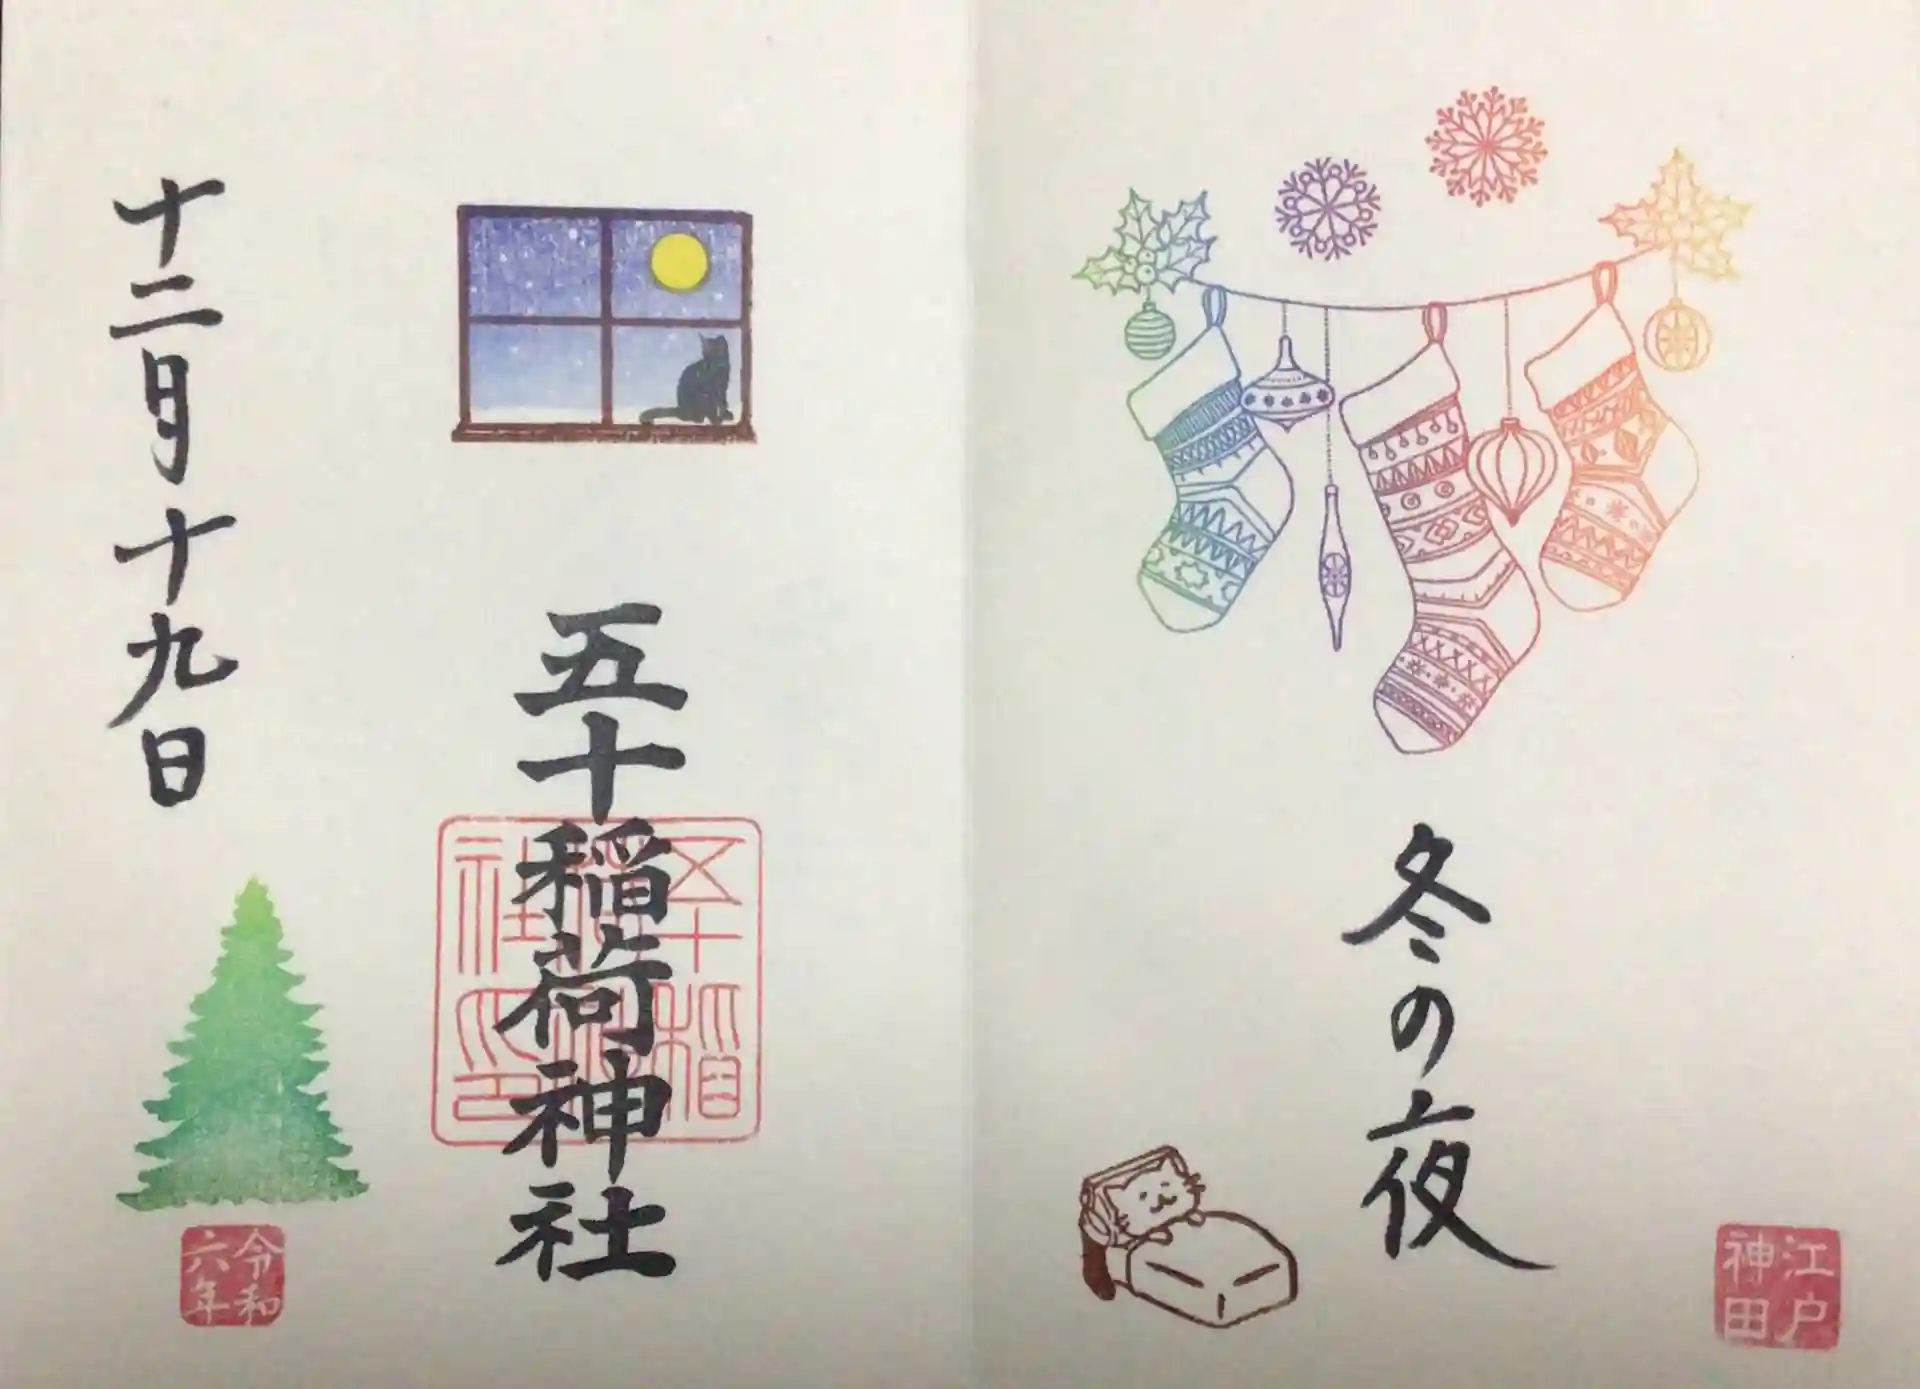 江戸神田
冬の夜
五十稲荷神社
五十稲荷神社印
十二月十九日
令和六年